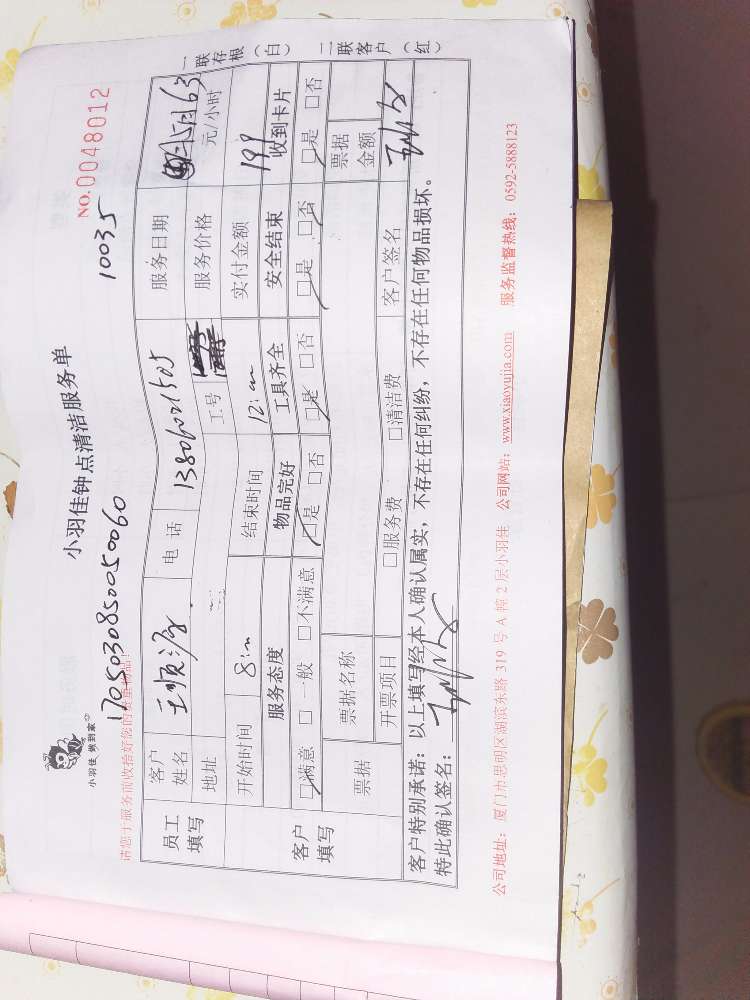 小羽佳 做到家
小羽佳钟点清洁服务单
NO.0048012
1705030850050060
10035
请您于服务前收拾好您的贵重物品!
员工填写
客户姓名 王顺 电话 13806021505 服务日期
地址 工号 服务价格 元/小时
开始时间 8: 结束时间 12: 实付金额 199
客户填写
服务态度 物品完好 工具齐全 安全结束 收到卡片
□满意 □一般 □不满意 □是 □否 □是 □否 □是 □否 □是 □否
票据 票据名称 票据金额
开票项目 □服务费 □清洁费 客户签名
客户特别承诺:以上填写经本人确认属实,不存在任何纠纷,不存在任何物品损坏。
特此确认签名:
公司地址:厦门市思明区湖滨东路 319 号 A 幢 2 层小羽佳 公司网站:www.xiaoyujia.com 服务监督热线:0592-5888123
一联存根(白) 二联客户(红)